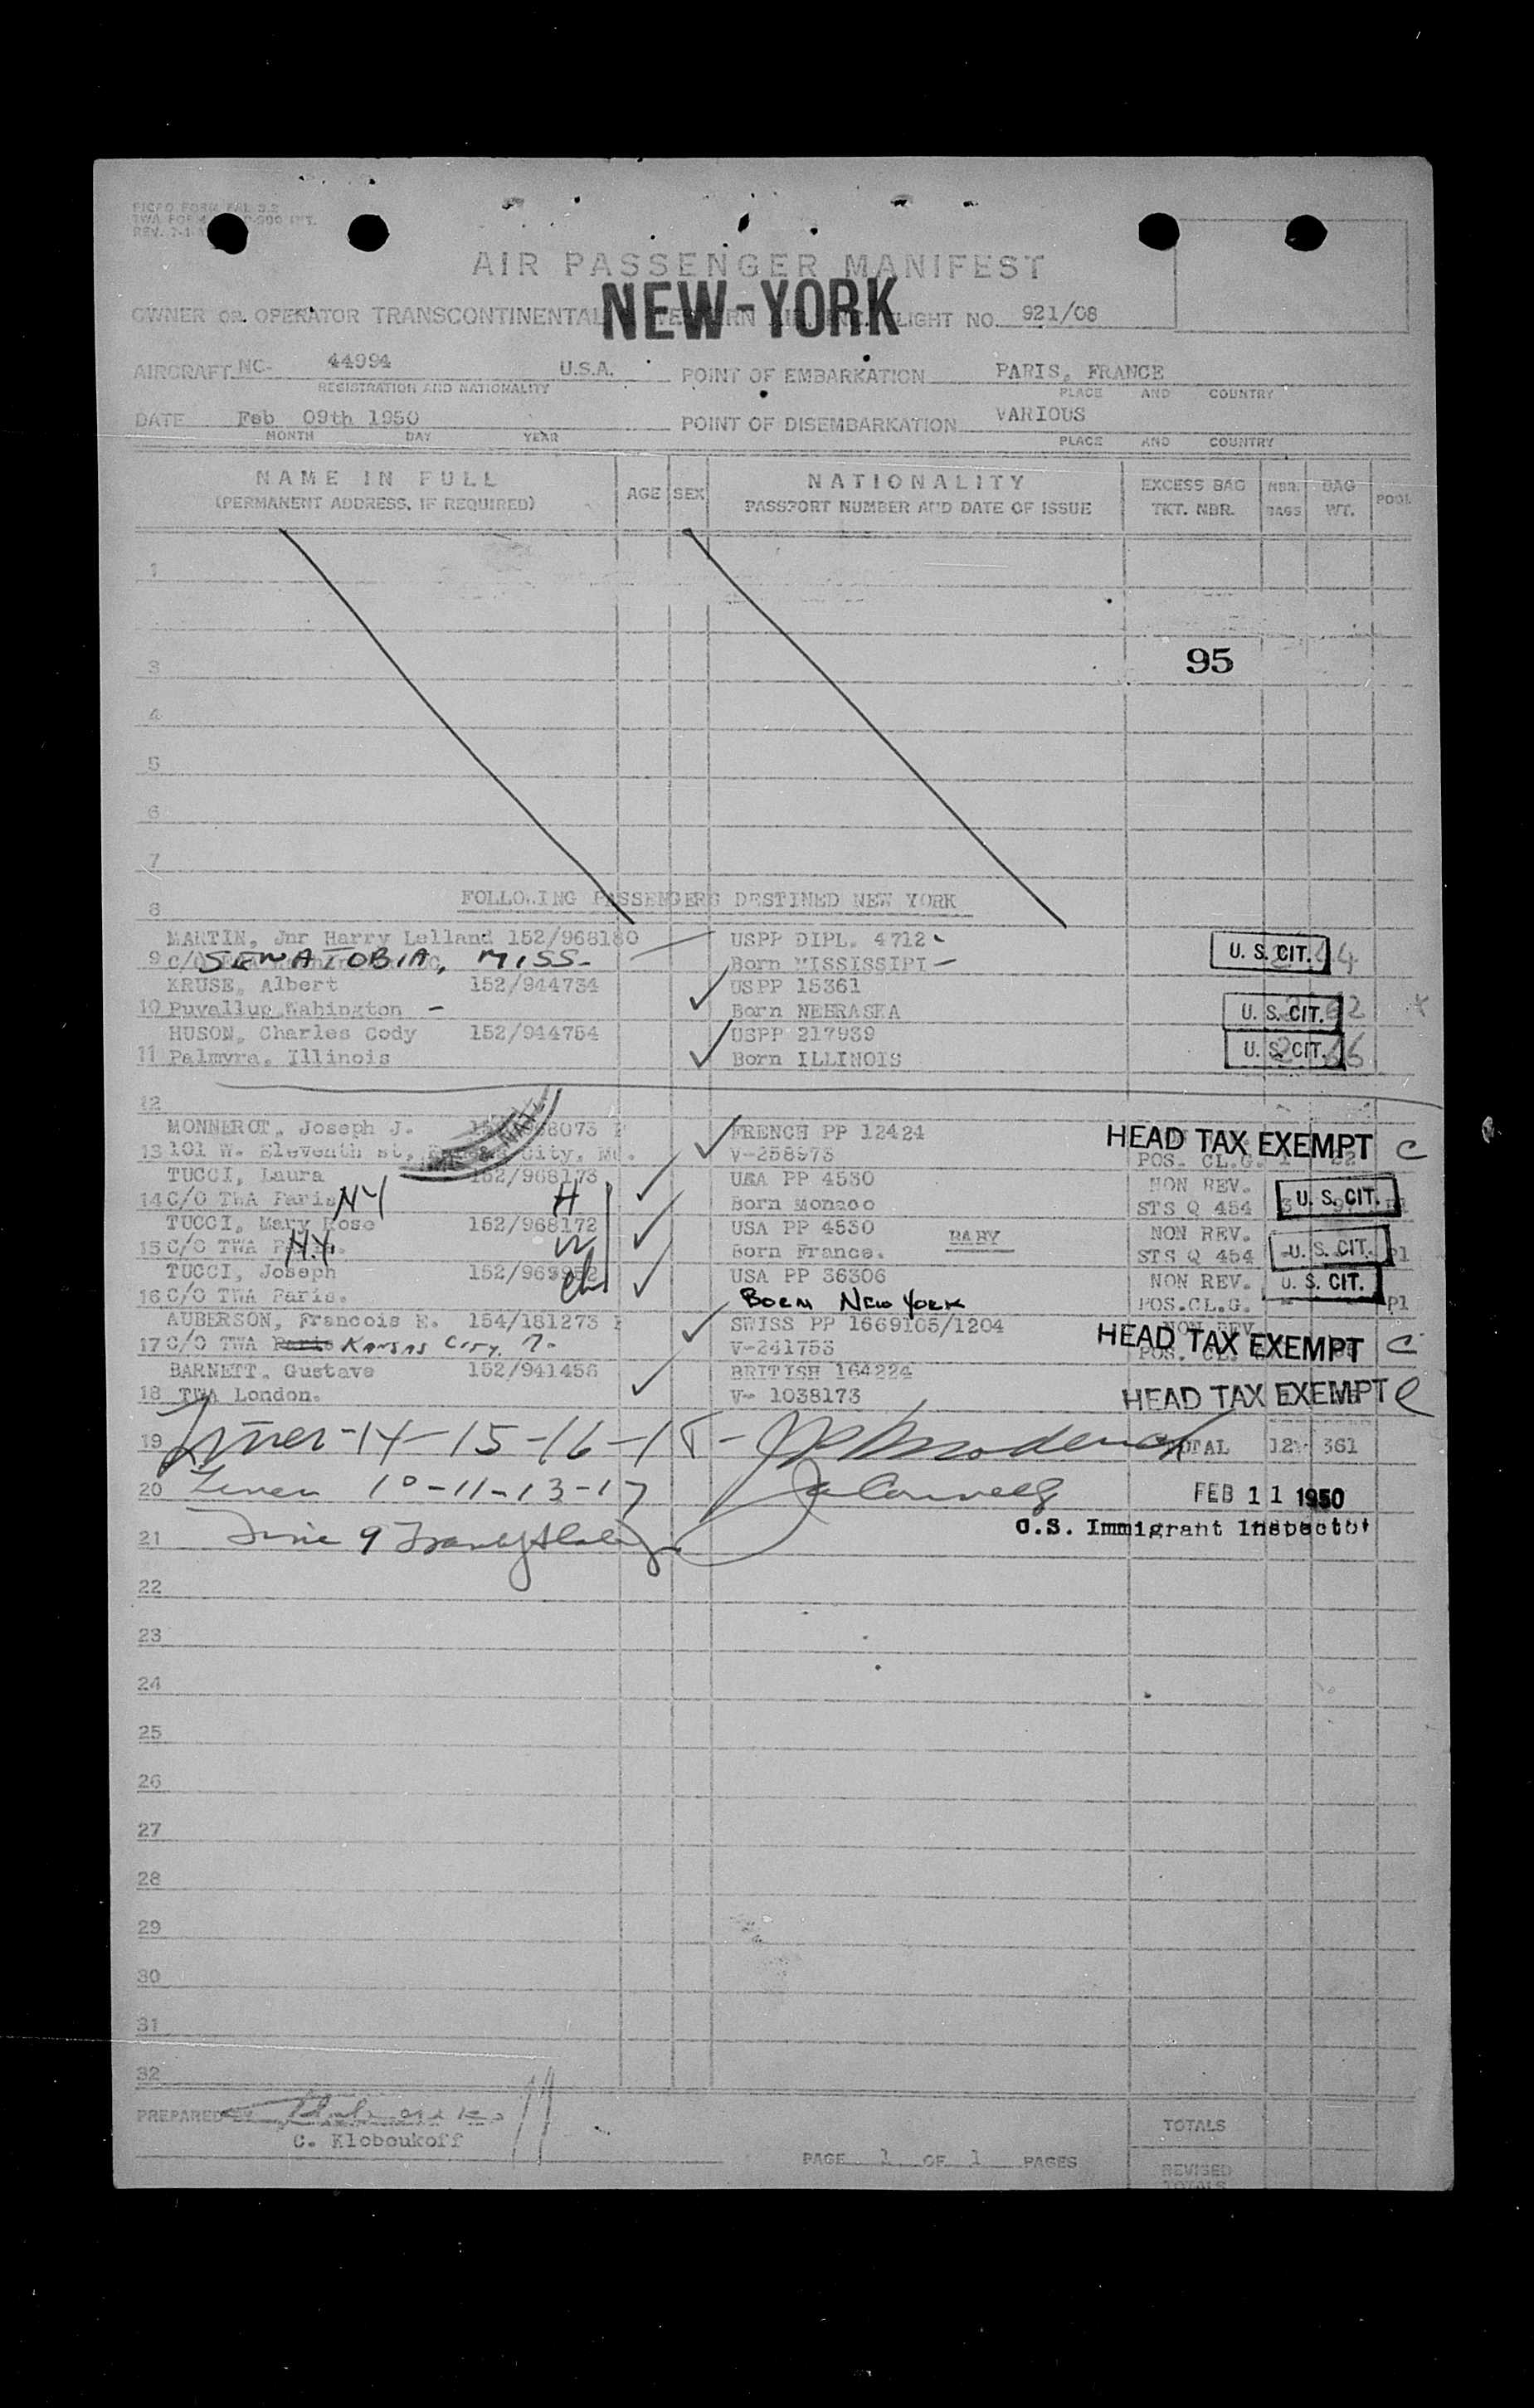 PICAO FORM FAL 3.2
TWA FORM
REV. 7-1-
AIR PASSENGER MANIFEST
NEW-YORK
OWNER OR OPERATOR TRANSCONTINENTAL FLIGHT NO. 921/08
AIRCRAFT NC- 44994 U.S.A. POINT OF EMBARKATION PARIS, FRANCE
REGISTRATION AND NATIONALITY PLACE AND COUNTRY
DATE Feb 09th 1950 POINT OF DISEMBARKATION VARIOUS
MONTH DAY YEAR PLACE AND COUNTRY
NAME IN FULL AGE SEX NATIONALITY EXCESS BAG NBR. BAG POOL
(PERMANENT ADDRESS, IF REQUIRED) PASSPORT NUMBER AND DATE OF ISSUE TKT. NBR. BAGS WT.
1
3 95
4
5
6
7
FOLLOWING PASSENGERS DESTINED NEW YORK
8
MARTIN, Jnr Harry Lelland 152/968180 USPP DIPL. 4712
9 C/O SENATOBIA, MISS- Born MISSISSIPI U. S. CIT. 44
KRUSE, Albert 152/944734 USPP 15361
10 Puyallup Wahington Born NEBRASKA U. S. CIT. 62
HUSON, Charles Cody 152/944754 USPP 217939
11 Palmyra, Illinois Born ILLINOIS U. S. CIT. 66
12
MONNEROT, Joseph J. FRENCH PP 12424 HEAD TAX EXEMPT C
13 101 W. Eleventh st, City, Mo. V-258973 POS. CL.G. 1 22
TUCCI, Laura 152/968173 USA PP 4530 NON REV.
14 C/O TWA Paris NY H Born Monaco STS Q 454 U. S. CIT.
TUCCI, Mary Rose 152/968172 USA PP 4530 BABY NON REV.
15 C/O TWA N.Y. W Born France. STS Q 454 U. S. CIT. Pl
TUCCI, Joseph USA PP 36306 NON REV. U. S. CIT.
16 C/O TWA Paris. Ch BORN NEW YORK POS.CL.G. Pl
AUBERSON, Francois E. 154/181273 SWISS PP 1669105/1204 NON REV.
17 C/O TWA Paris KANSAS CITY, V-241753 POS. CL. HEAD TAX EXEMPT C
BARNETT, Gustave 152/941456 BRITISH 164224
18 TWA London. V- 1038173 HEAD TAX EXEMPT C
19 14-15-16-18- TOTAL 12 361
20 10-11-13-17 FEB 11 1950
U.S. Immigrant Inspector
21 9
22
23
24
25
26
27
28
29
30
31
32
PREPARED BY TOTALS
C. Kloboukoff
PAGE 1 OF 1 PAGES REVISED
TOTALS